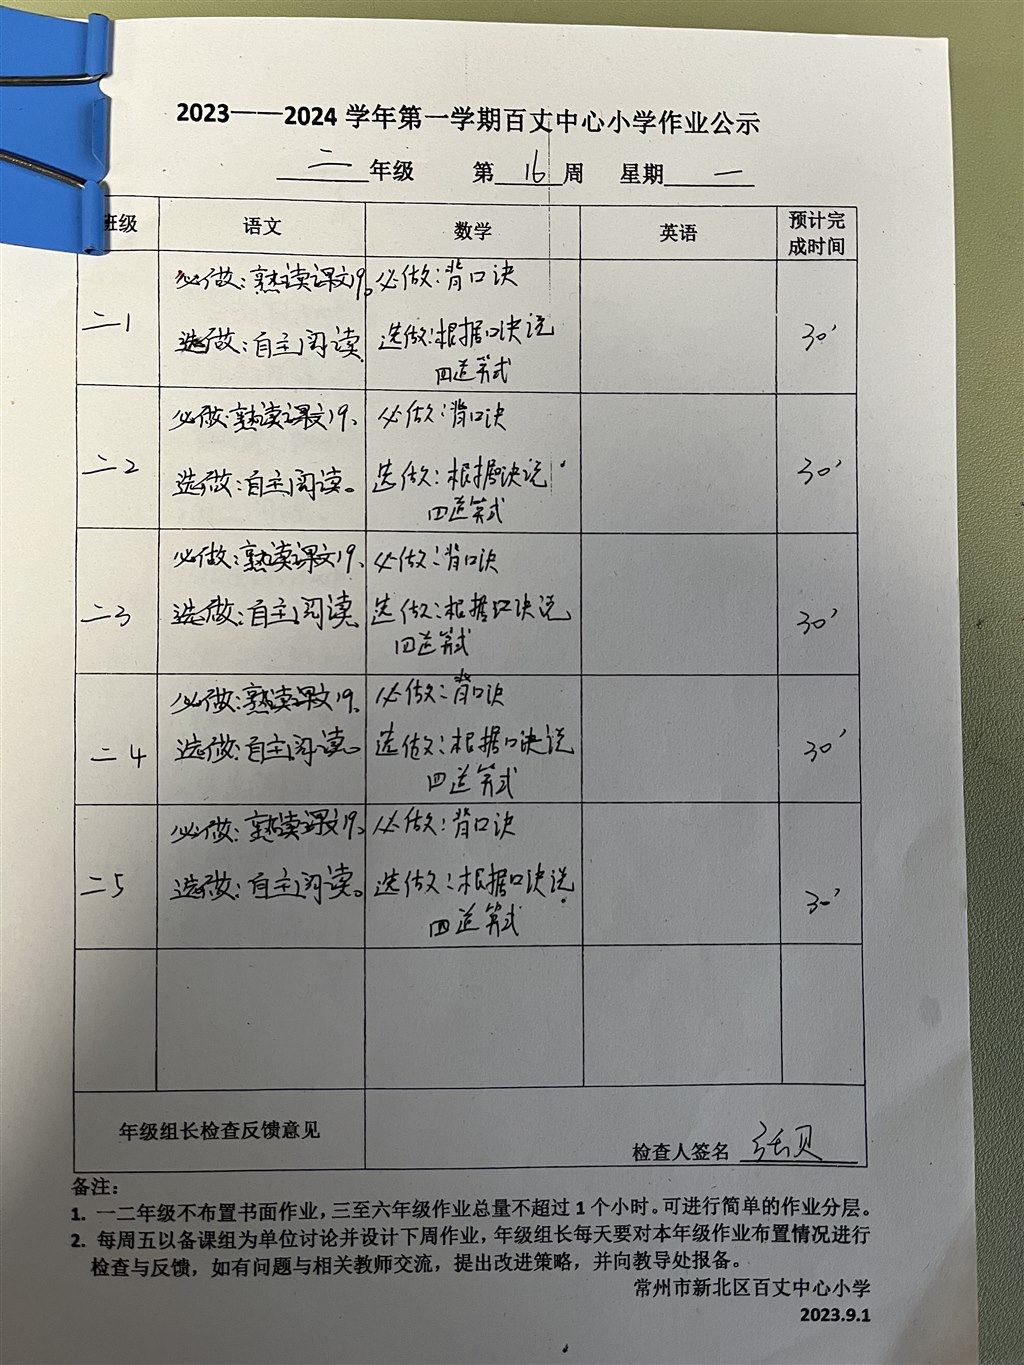 2023——2024 学年第一学期百丈中心小学作业公示
二 年级 第 16 周 星期 一
班级 语文 数学 英语 预计完成时间
二1
必做:熟读课文19。
选做:自主阅读
必做:背口诀
选做:根据口诀说
四道算式
30'
二2
必做:熟读课文19、
选做:自主阅读。
必做:背口诀
选做:根据口诀说
四道算式
30'
二3
必做:熟读课文19、
选做:自主阅读
必做:背口诀
选做:根据口诀说
四道算式
30'
二4
必做:熟读课文19、
选做:自主阅读。
必做:背口诀
选做:根据口诀说
四道算式
30'
二5
必做:熟读课文19、
选做:自主阅读。
必做:背口诀
选做:根据口诀说
四道算式
30'
年级组长检查反馈意见
检查人签名 张贝
备注:
1. 一二年级不布置书面作业,三至六年级作业总量不超过 1 个小时。可进行简单的作业分层。
2. 每周五以备课组为单位讨论并设计下周作业,年级组长每天要对本年级作业布置情况进行
检查与反馈,如有问题与相关教师交流,提出改进策略,并向教导处报备。
常州市新北区百丈中心小学
2023.9.1